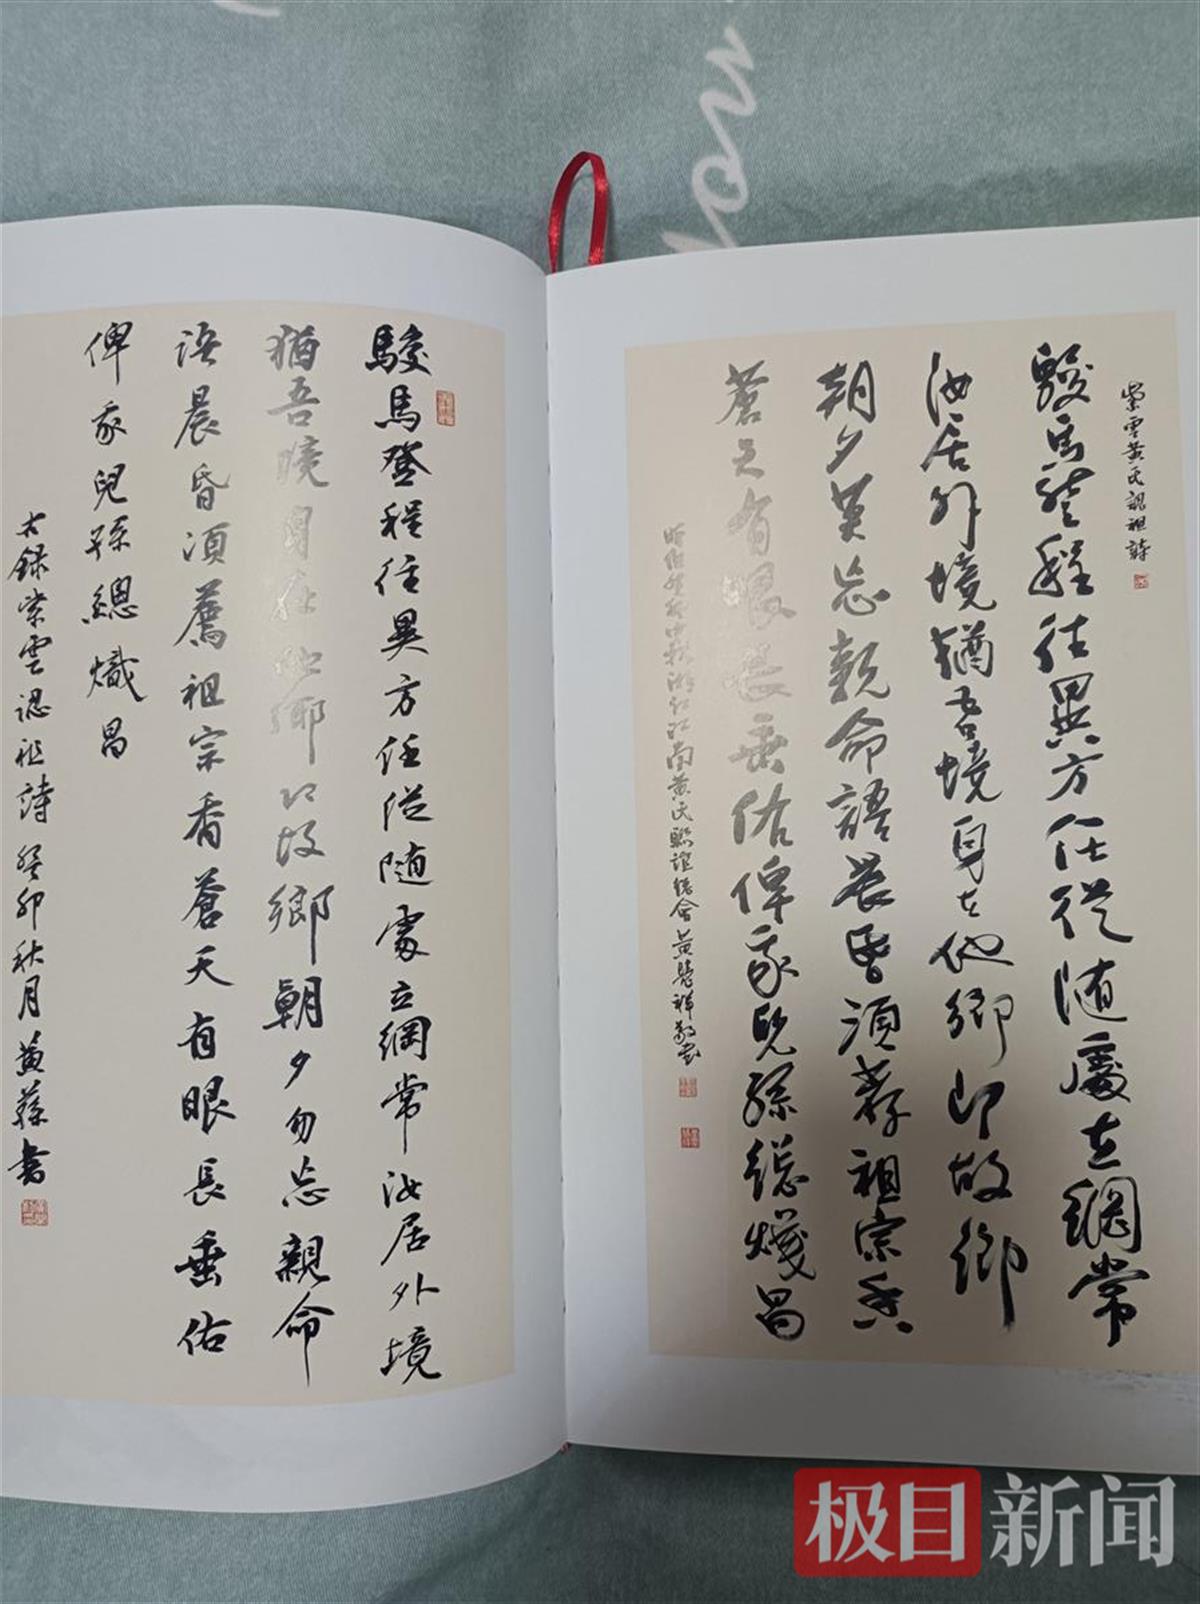 紫雲黃氏認祖詩
駿馬登程往異方任從随處立綱常
汝居外境猶吾境身在他鄉即故鄉
朝夕莫忘親命語晨昏須荐祖宗香
蒼天有眼長垂佑俾我兒孫總熾昌
癸卯中秋江南黃氏聯誼總會黃祥敬書
駿馬登程往異方任從随處立綱常汝居外境
猶吾境身在他鄉即故鄉朝夕勿忘親命
語晨昏須薦祖宗香蒼天有眼長垂佑
俾我兒孫總熾昌
右錄紫雲認祖詩癸卯秋月黃書
极目新闻